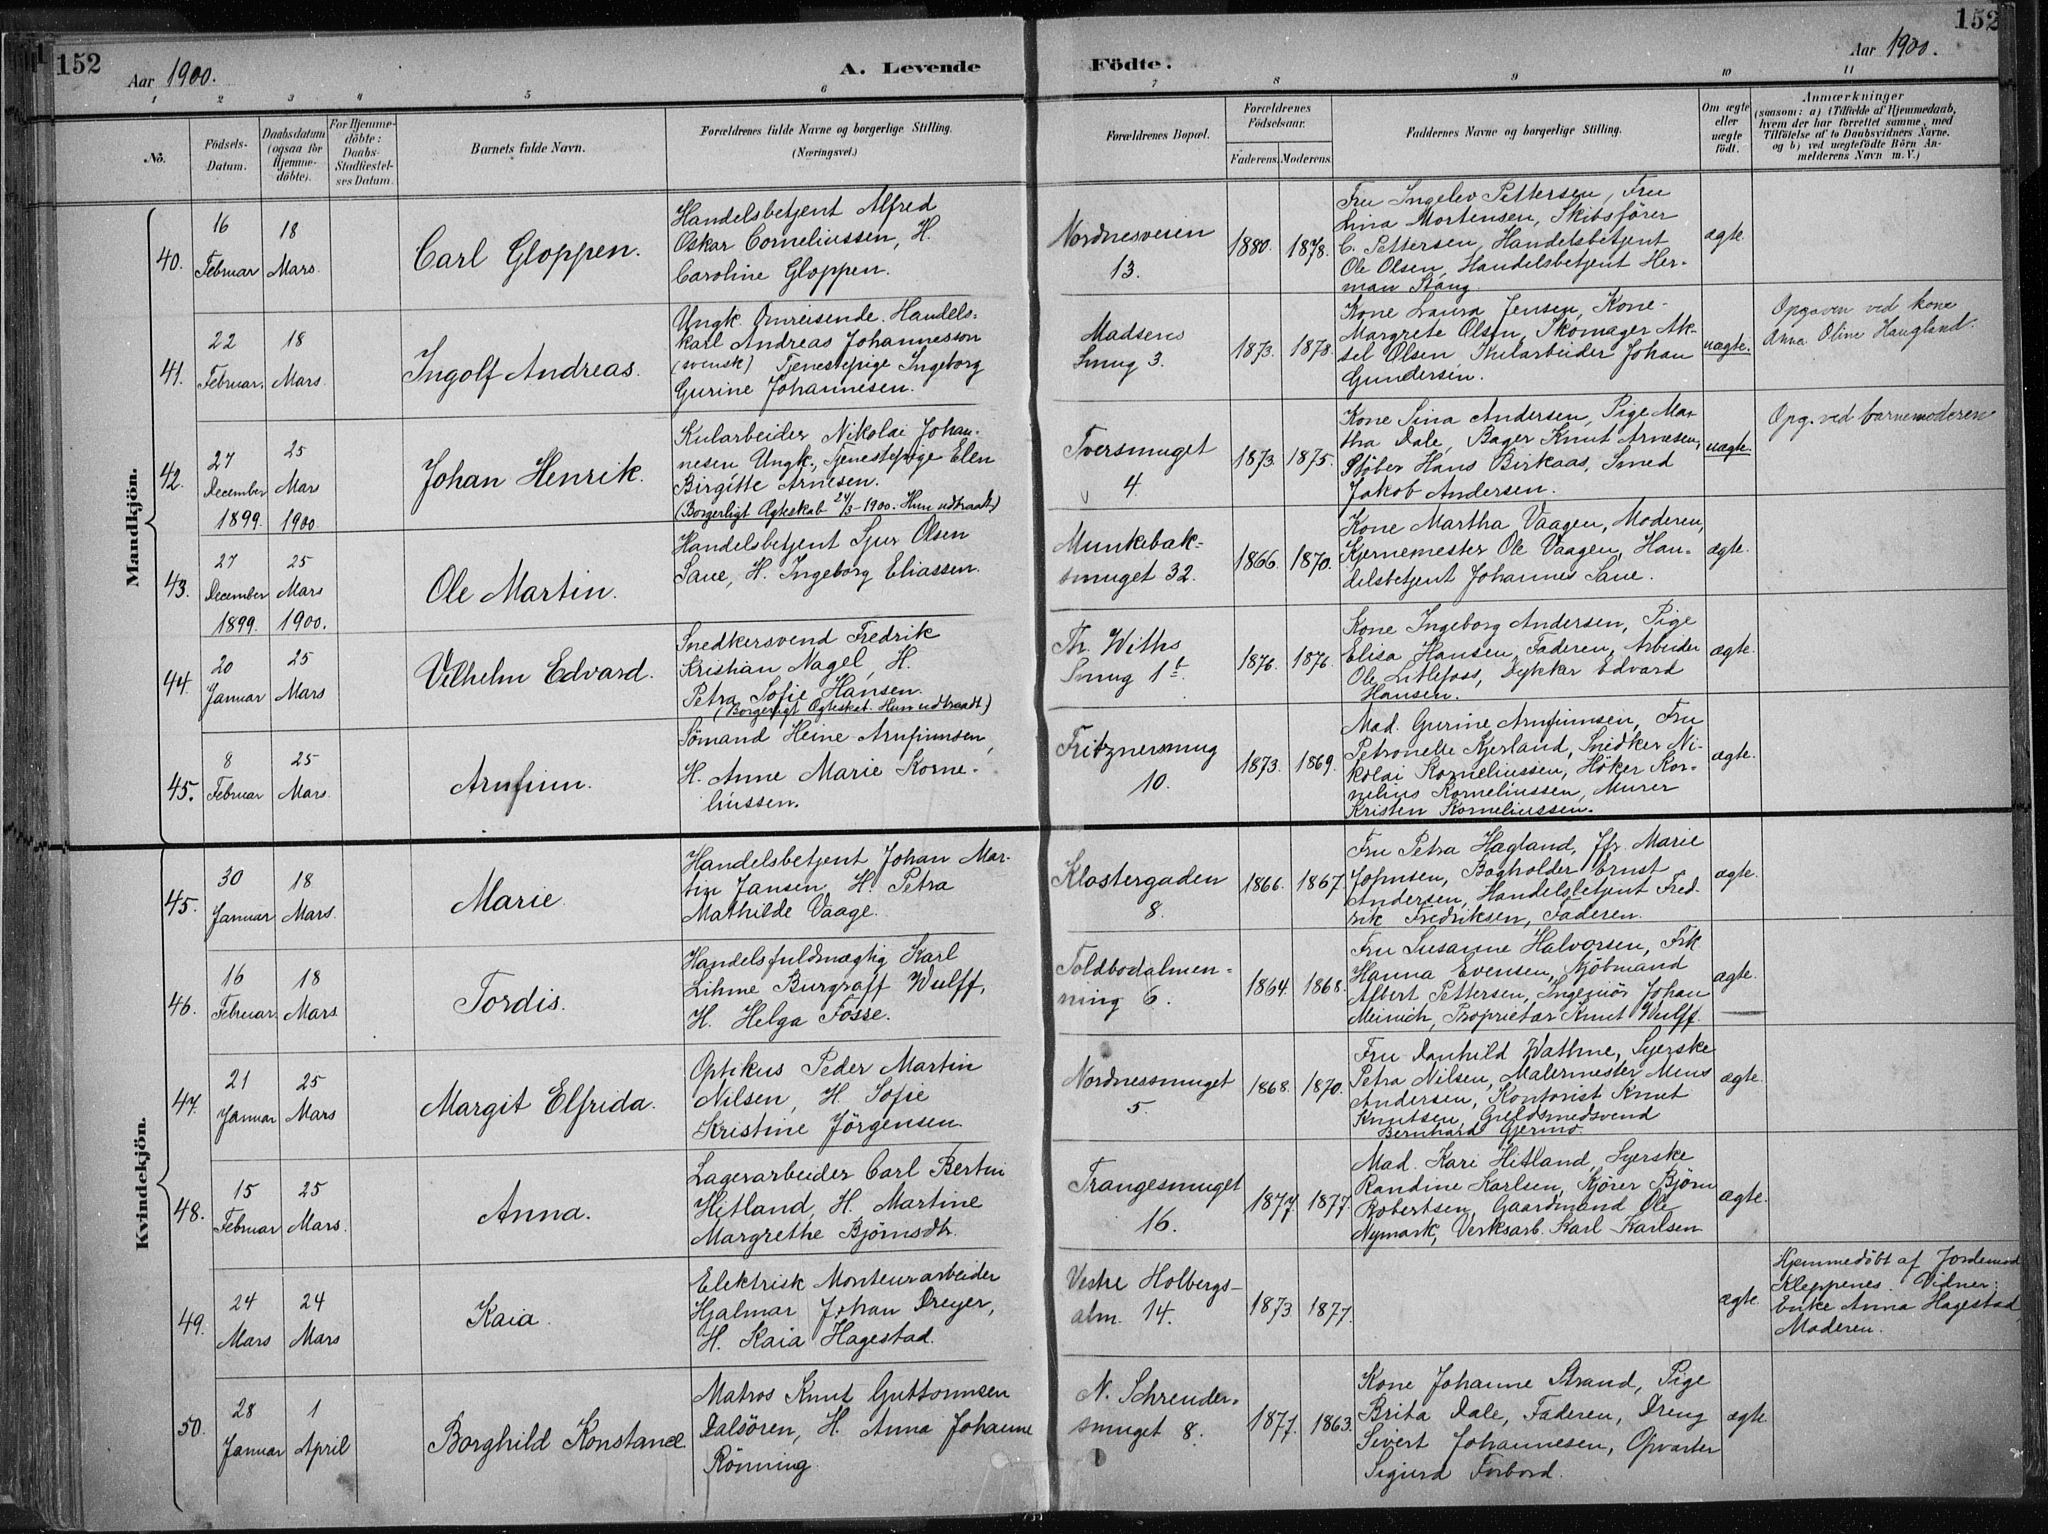 152
Aar 1900.
A. Levende
Födte.
Aar 1900.
152
1 2 3 4 5 6 7 8 9 10 11
No.
Födsels-
Datum.
Daabsdatum
(ogsaa for
Hjemme-
döbte).
For Hjemme-
döbte:
Daabs-
Stadfæstel-
ses Datum.
Barnets fulde Navn.
Forældrenes fulde Navne og borgerlige Stilling.
(Næringsvei.)
Forældrenes Bopæl.
Forældrenes
Födselsaar.
Faderens. Moderens.
Faddernes Navne og borgerlige Stilling.
Om ægte
eller
uægte
födt.
Anmærkninger
(saasom: a) i Tilfælde af Hjemmedaab,
hvem der har forrettet samme, med
Tilföielse af to Daabsvidners Navne,
og b) ved uægtefödte Börn An-
melderens Navn m. V.)
Mandkjön.
40.
16
Februar
18
Mars.
Carl Gloppen.
Handelsbetjent Alfred
Oskar Corneliussen, H.
Caroline Gloppen.
Nordnesveien
13.
1880. 1878.
Fru Ingelev Pettersen, Fru
Lina Mortensen, Skibsförer
C. Pettersen, Handelsbetjent
Ole Olsen, Handelsbetjent Her-
man Stang.
ægte.
41.
22
Februar.
18
Mars.
Ingolf Andreas.
Ungk. Omreisende Handels-
karl Andreas Johannesson
(svensk) Tjenestepige Ingeborg
Gurine Johannesen.
Madsens
Smug 3.
1873. 1878.
Kone Laura Jensen, Kone
Margrete Olsen, Skomager Ak-
sel Olsen Kularbeider Johan
Gundersen.
uægte.
Opgaven ved kone
Anna Oline Haugland.
42.
27
December
1899
25
Mars
1900
Johan Henrik.
Kularbeider Nikolai Johan-
nesen Ungk., Tjenestepige Elen
Birgitte Arnesen.
(Borgerligt Ægteskab 24/3-1900. Hun udtraadt)
Tversmuget
4.
1873. 1875.
Kone Sina Andersen, Pige Mar-
tha Dale, Bager Knut Arnesen,
Stöber Hans Birkaas, Smed
Jakob Andersen.
uægte.
Opg. ved barnemoderen
43.
27
December
1899.
25
Mars
1900.
Ole Martin.
Handelsbetjent Sjur Olsen
Saue, H. Ingeborg Eliassen.
Munkebæk-
smuget 32.
1866. 1870.
Kone Martha Vaagen, Moderen,
Kjernemester Ole Vaagen, Han-
delsbetjent Johannes Saue.
ægte.
44.
20
Januar
25
Mars
Vilhelm Edvard.
Snedkersvend Fredrik
Kristian Nagel, H.
Petra Sofie Hansen.
(Borgerligt Ægteskab. Hun udtraadt)
Th. Withs
Smug 1 b.
1876. 1876.
Kone Ingeborg Andersen, Pige
Elisa Hansen, Faderen, Arbeider
Ole Litlefoss, Dykker Edvard
Hansen.
ægte.
45.
8
Februar
25
Mars.
Arnfinn.
Sömand Heine Arnfinnsen,
H. Anne Marie Korne-
liussen.
Fritznersmug
10.
1873. 1869.
Mad. Gurine Arnfinnsen, Fru
Petronelle Kjerland, Snedker Ni-
kolai Korneliussen, Höker Kor-
nelius Korneliussen, Murer
Kristen Korneliussen.
ægte.
Kvindekjön.
45.
30
Januar
18
Mars.
Marie.
Handelsbetjent Johan Mar-
tin Jansen, H. Petra
Mathilde Vaage.
Klostergaden
8.
1866. 1867
Fru Petra Hægland, Jfr. Marie
Johnsen, Bogholder Ernst
Andersen, Handelsbetjent Fred-
rik Fredriksen, Faderen.
ægte.
46.
16
Februar.
18
Mars.
Tordis.
Handelsfuldmægtig Karl
Lihme Burgraff Wulff,
H. Helga Fosse.
Toldbodalmen-
ning 6.
1864. 1868.
Fru Susanne Halvorsen, Frk
Hanna Evensen, Kjöbmand
Albert Pettersen, Ingeniör Johan
Meinich, Proprietær Knut Wulff.
ægte.
47.
21
Januar
25
Mars
Margit Elfrida.
Optikus Peder Martin
Nilsen, H. Sofie
Kristine Jörgensen.
Nordnessmuget
5.
1868. 1870.
Fru Danhild Wathne, Syerske
Petra Nilsen, Malermester Mons
Andersen, Kontorist Knut
Knutsen, Guldsmedsvend
Bernhard Gjermo.
ægte.
48.
15
Februar
25
Mars.
Anna.
Lagerarbeider Carl Bertin
Hitland, H. Martine
Margrethe Björnsdtr.
Trangesmuget
16.
1877. 1877.
Mad. Kari Hitland, Syerske
Randine Karlsen, Kjörer Björn
Robertsen, Gaardmand Ole
Nymark, Verksarb. Karl Karlsen
ægte.
49.
24
Mars
24
Mars
Kaia.
Elektrisk Monteurarbeider
Hjalmar Johan Dreyer,
H. Kaia Hagestad.
Vestre Holbergs-
alm. 14.
1873 1877.
ægte.
Hjemmedöbt af Jordemod
Kleppenes. Vidner:
Enke Anna Hagestad,
Moderen.
50.
28
Januar
1
April
Borghild Konstance
Matros Knut Guttormsen
Dalsören, H. Anna Johanne
Rönning.
N. Schreuder-
smuget 8.
1877. 1863.
Kone Johanne Strand, Pige
Brita Dale, Faderen, Dreng
Sivert Johannesen, Opvarter
Sigurd Forbord.
ægte.